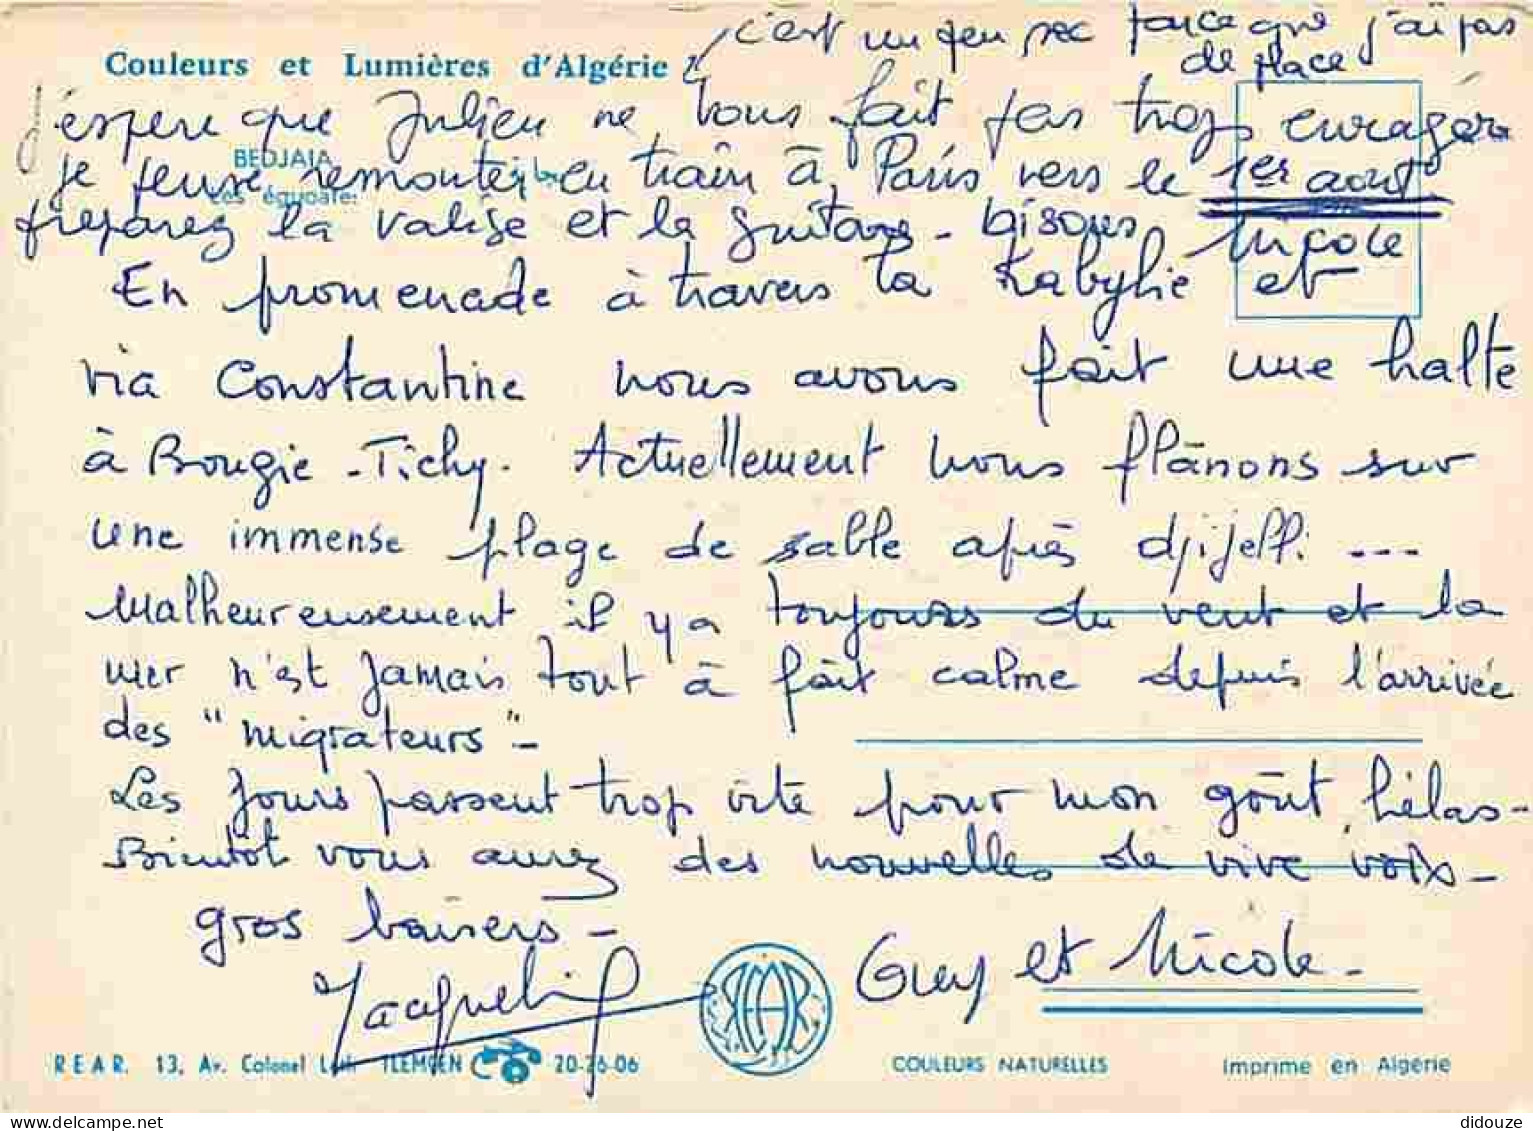 c'est un peu sec parce que j'ai pas
de place
Couleurs et Lumières d'Algérie
j'espere que Julien ne vous fait pas trop enrager
BEDJAIA
je pense remonter en train à Paris vers le 1er aout
Les égyoates
preparez la valise et la guitare - bisous Nicole
En promenade à travers la Kabylie et
via Constantine nous avons fait une halte
à Bougie - Tichy. Actuellement nous flânons sur
une immense plage de sable après djijelli ---
Malheureusement il y a toujours du vent et la
mer n'est jamais tout à fait calme depuis l'arrivée
des "migrateurs" -
Les jours passent trop vite pour mon goût, hélas -
Bientôt vous aurez des nouvelles de vive voix -
gros baisers -
Jacqueline
Guy et Nicole -
REAR
R E A R. 13, Av. Colonel Lotfi TLEMCEN 20-26-06
COULEURS NATURELLES
Imprimé en Algérie
didouze